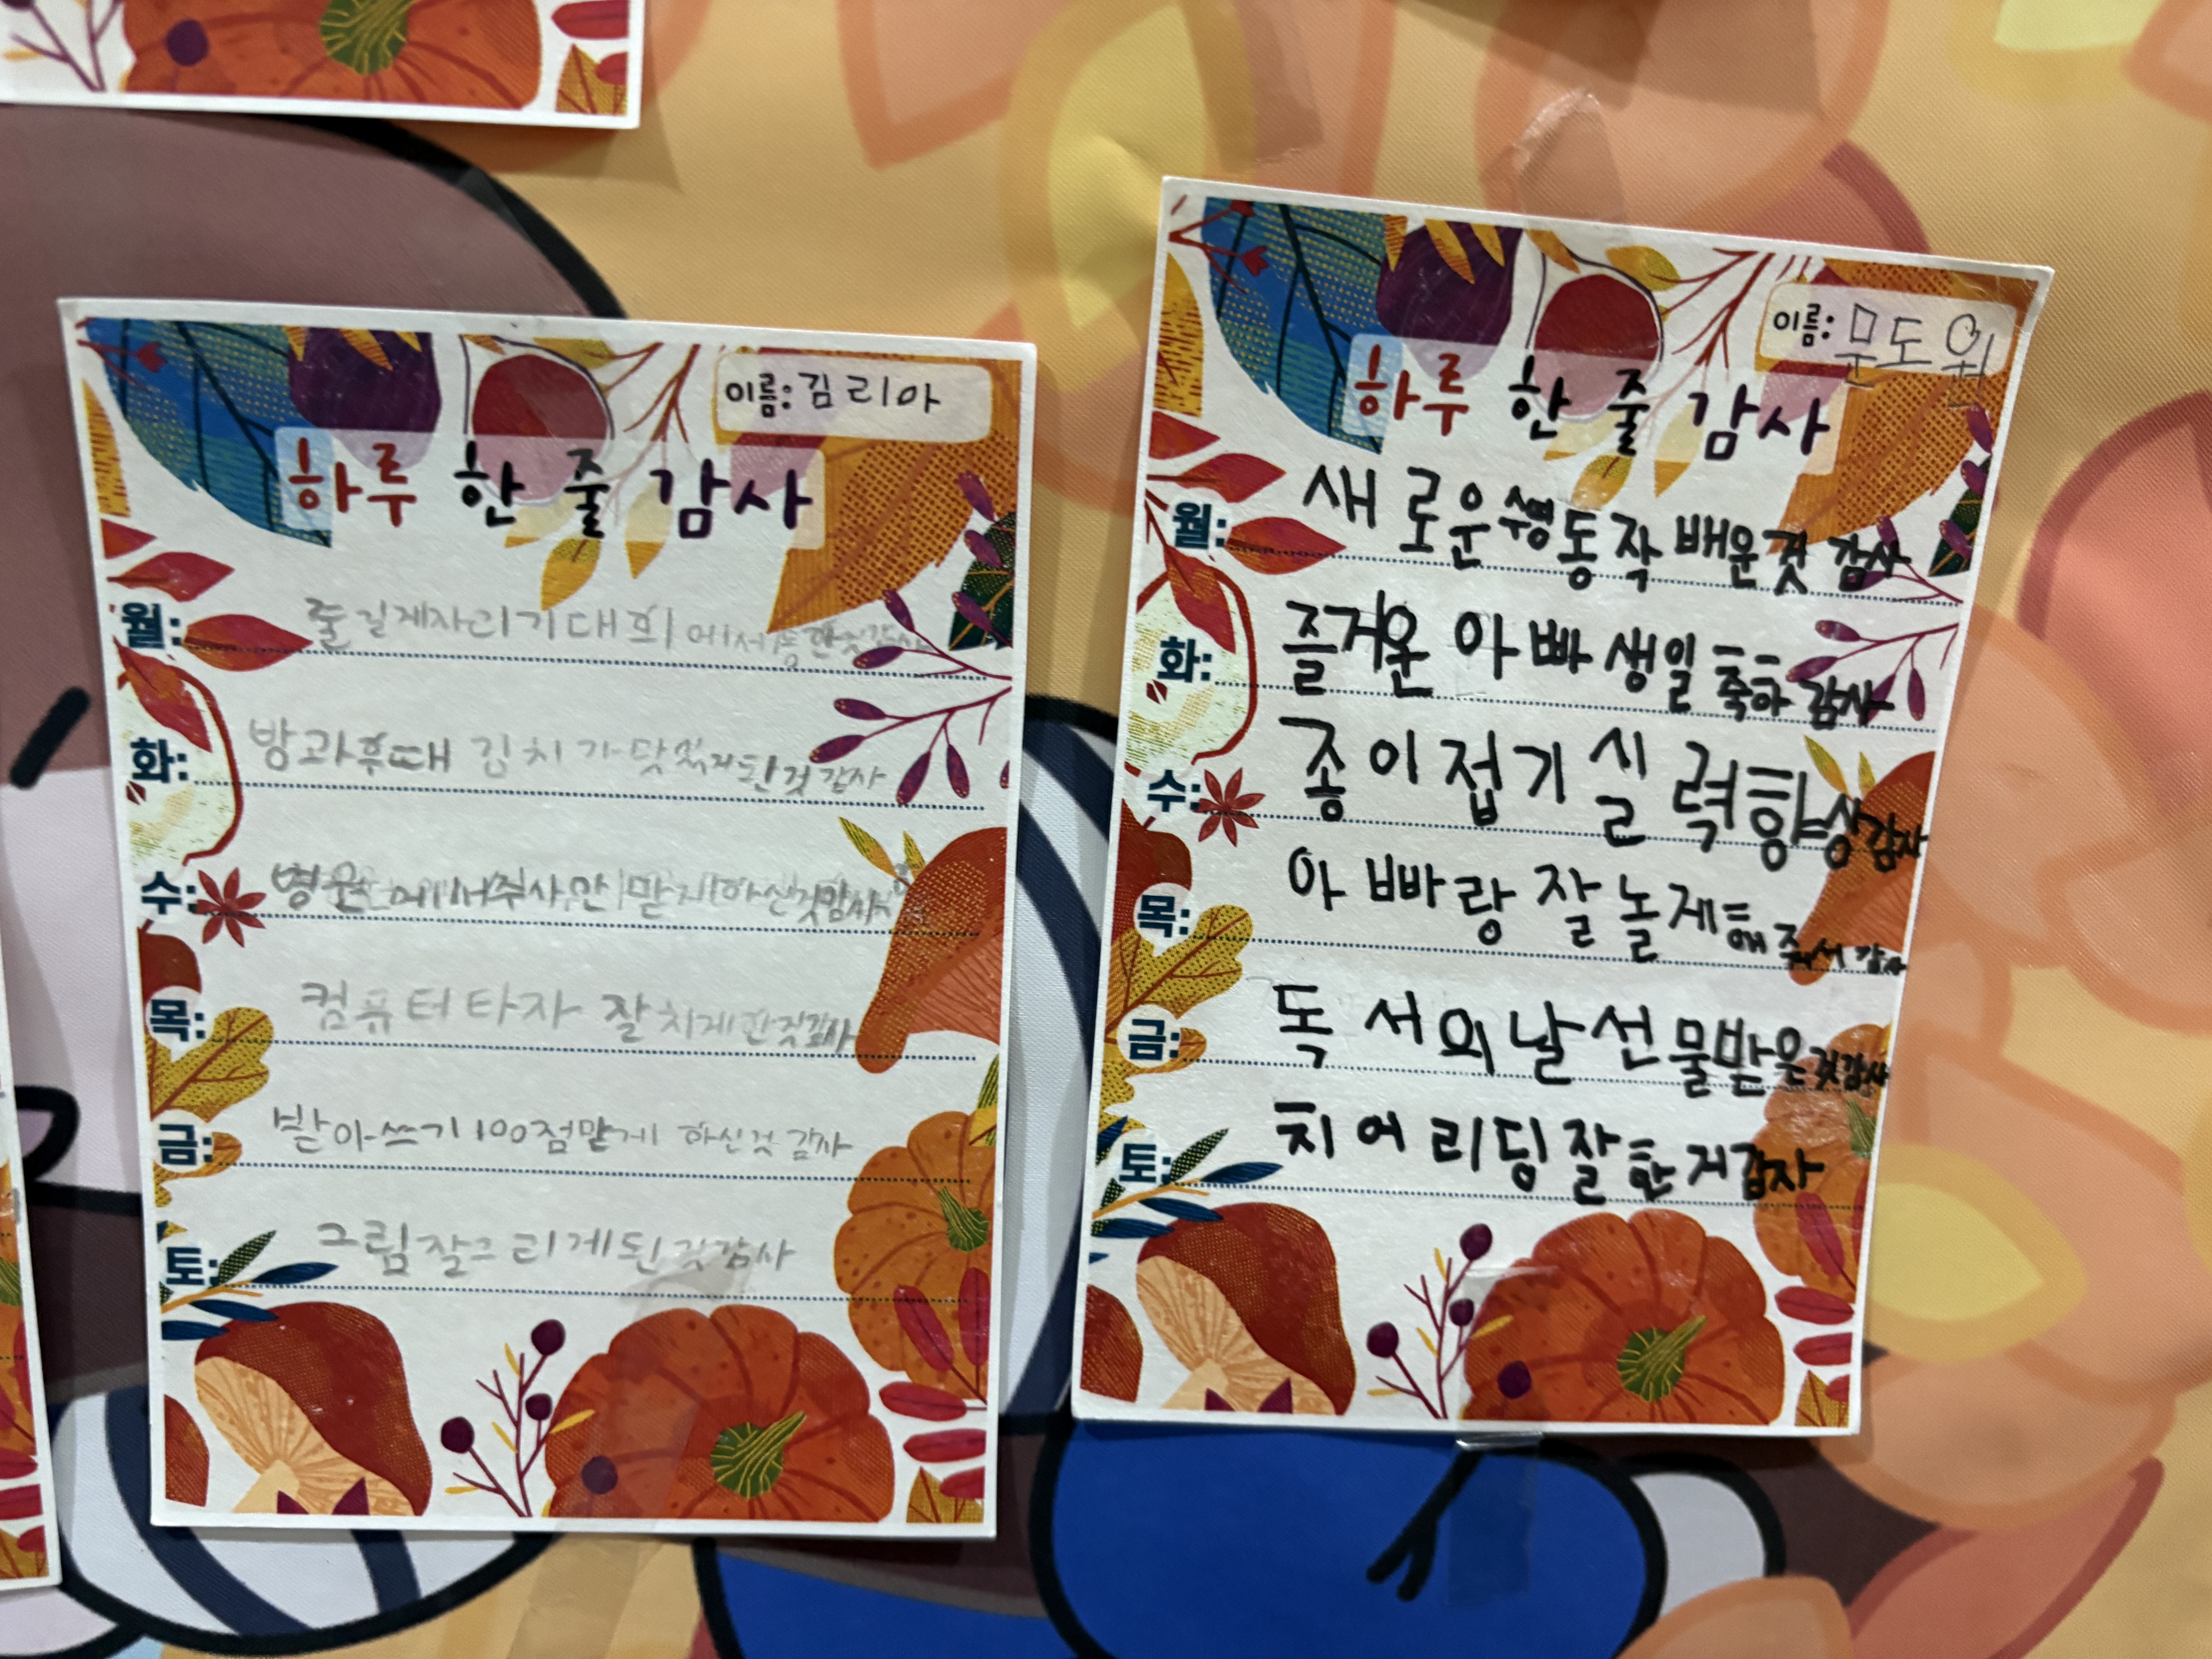 이름: 김리아
하루 한 줄 감사
월: 줄길게자리기대회에서 한것감사
화: 방과후때 김치가 된것감사
수: 병원에서주사안맞게하신것감사
목: 컴퓨터타자 잘치게한것감사
금: 받아쓰기100점맏게 하신것 감사
토: 그림잘그리게된것감사
이름: 문도원
하루 한 줄 감사
월: 새로운수영동작배운것 감사
화: 즐거운 아빠 생일축하 감사
수: 종이접기실력향상감사
목: 아빠랑 잘놀게해주셔 감사
금: 독서의날선물받은것감사
토: 치어리딩잘한거감사